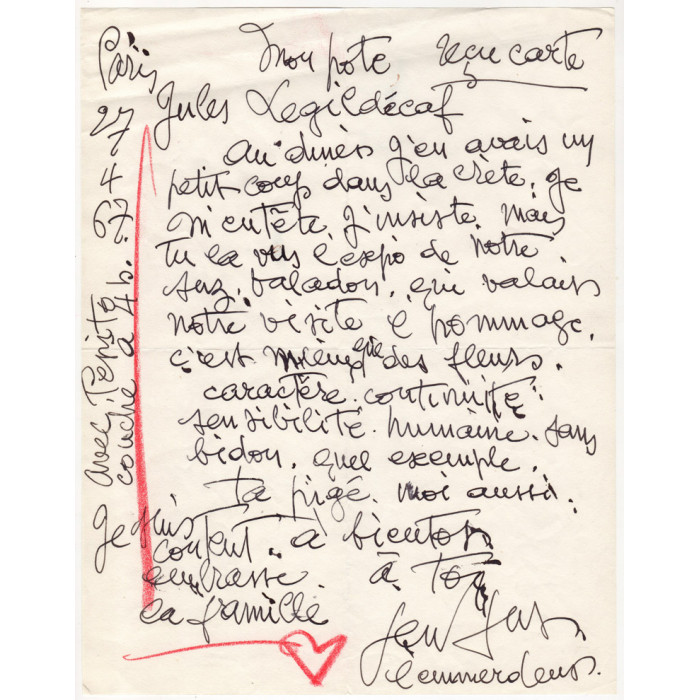 Mon pote reçu carte
Jules Legildécaf
au diner j'en avais un
petit coup dans la crète. je
m'entête. j'insiste. mais
tu la vus l'expo de notre
suz. baladon. qui valais
notre visite e hommage.
c'est mieux que des fleurs.
caractère. continuité.
sensibilité. humaine. sans
bidon. quel exemple.
ta pigé. moi aussi.
Je suis
content. à bientot
embrasse. à toi
la famille
l'emmerdeus.
Paris 27 4 67
avec Pepito
couché à 4 h.